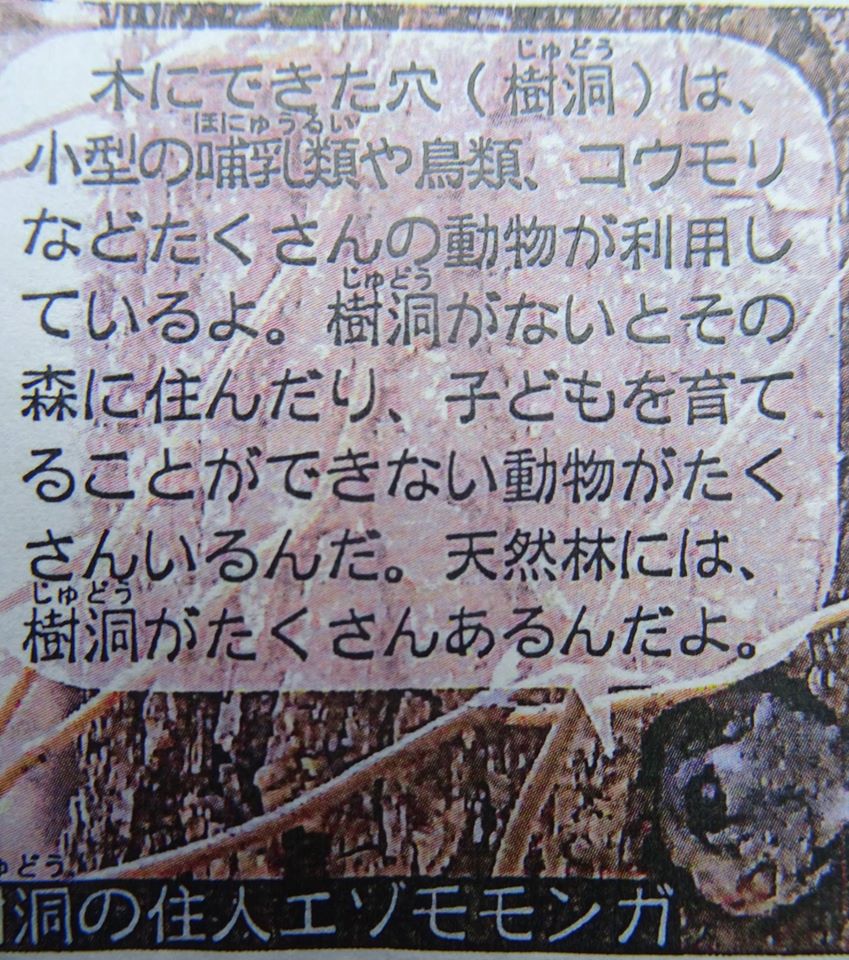 じゅどう
木にできた穴(樹洞)は、
ほにゅうるい
小型の哺乳類や鳥類、コウモリ
などたくさんの動物が利用し
じゅどう
ているよ。樹洞がないとその
森に住んだり、子どもを育て
ることができない動物がたく
さんいるんだ。天然林には、
じゅどう
樹洞がたくさんあるんだよ。
ゅどう
洞の住人エゾモモンガ